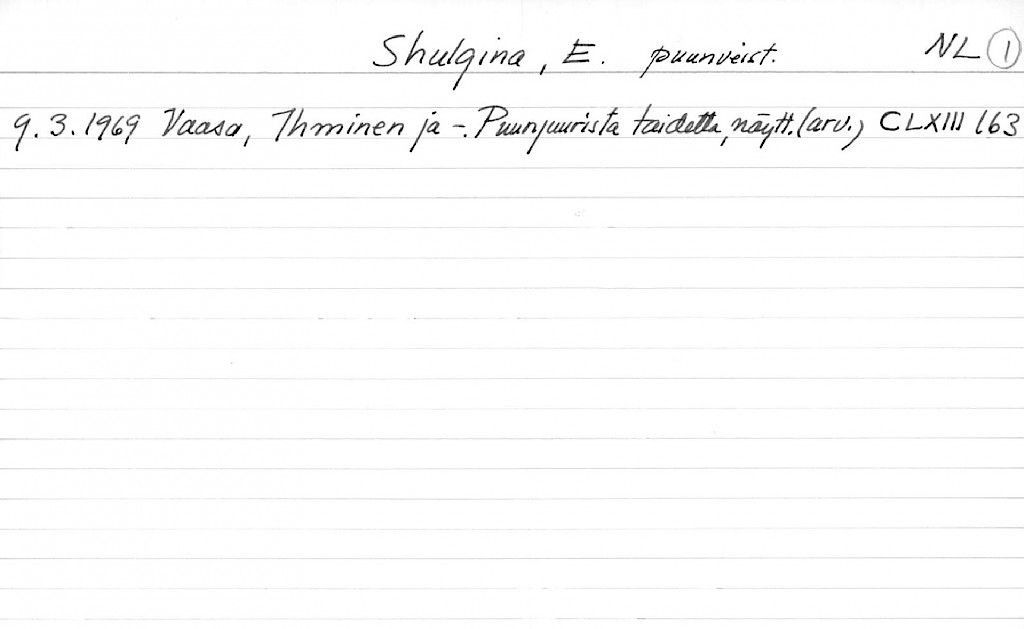 Shulgina, E. puunveist. NL 1
9.3.1969 Vaasa, Ihminen ja -. Puunjuurista taidetta, näytt. (arv.) CLXIII 163